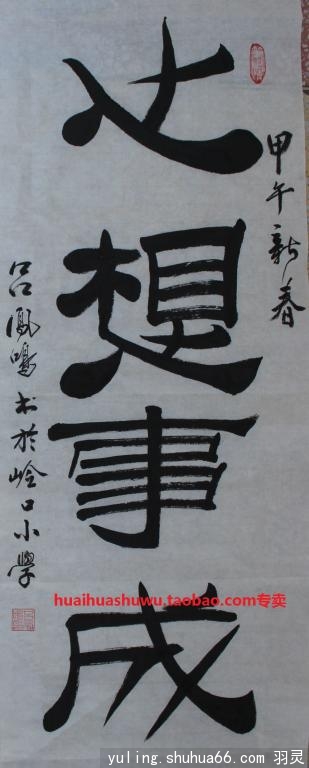 甲午新春
心想事成
吕凤鸣书于岭口小学
huaihuashuwu.taobao.com专卖
yuling.shuhua66.com 羽灵